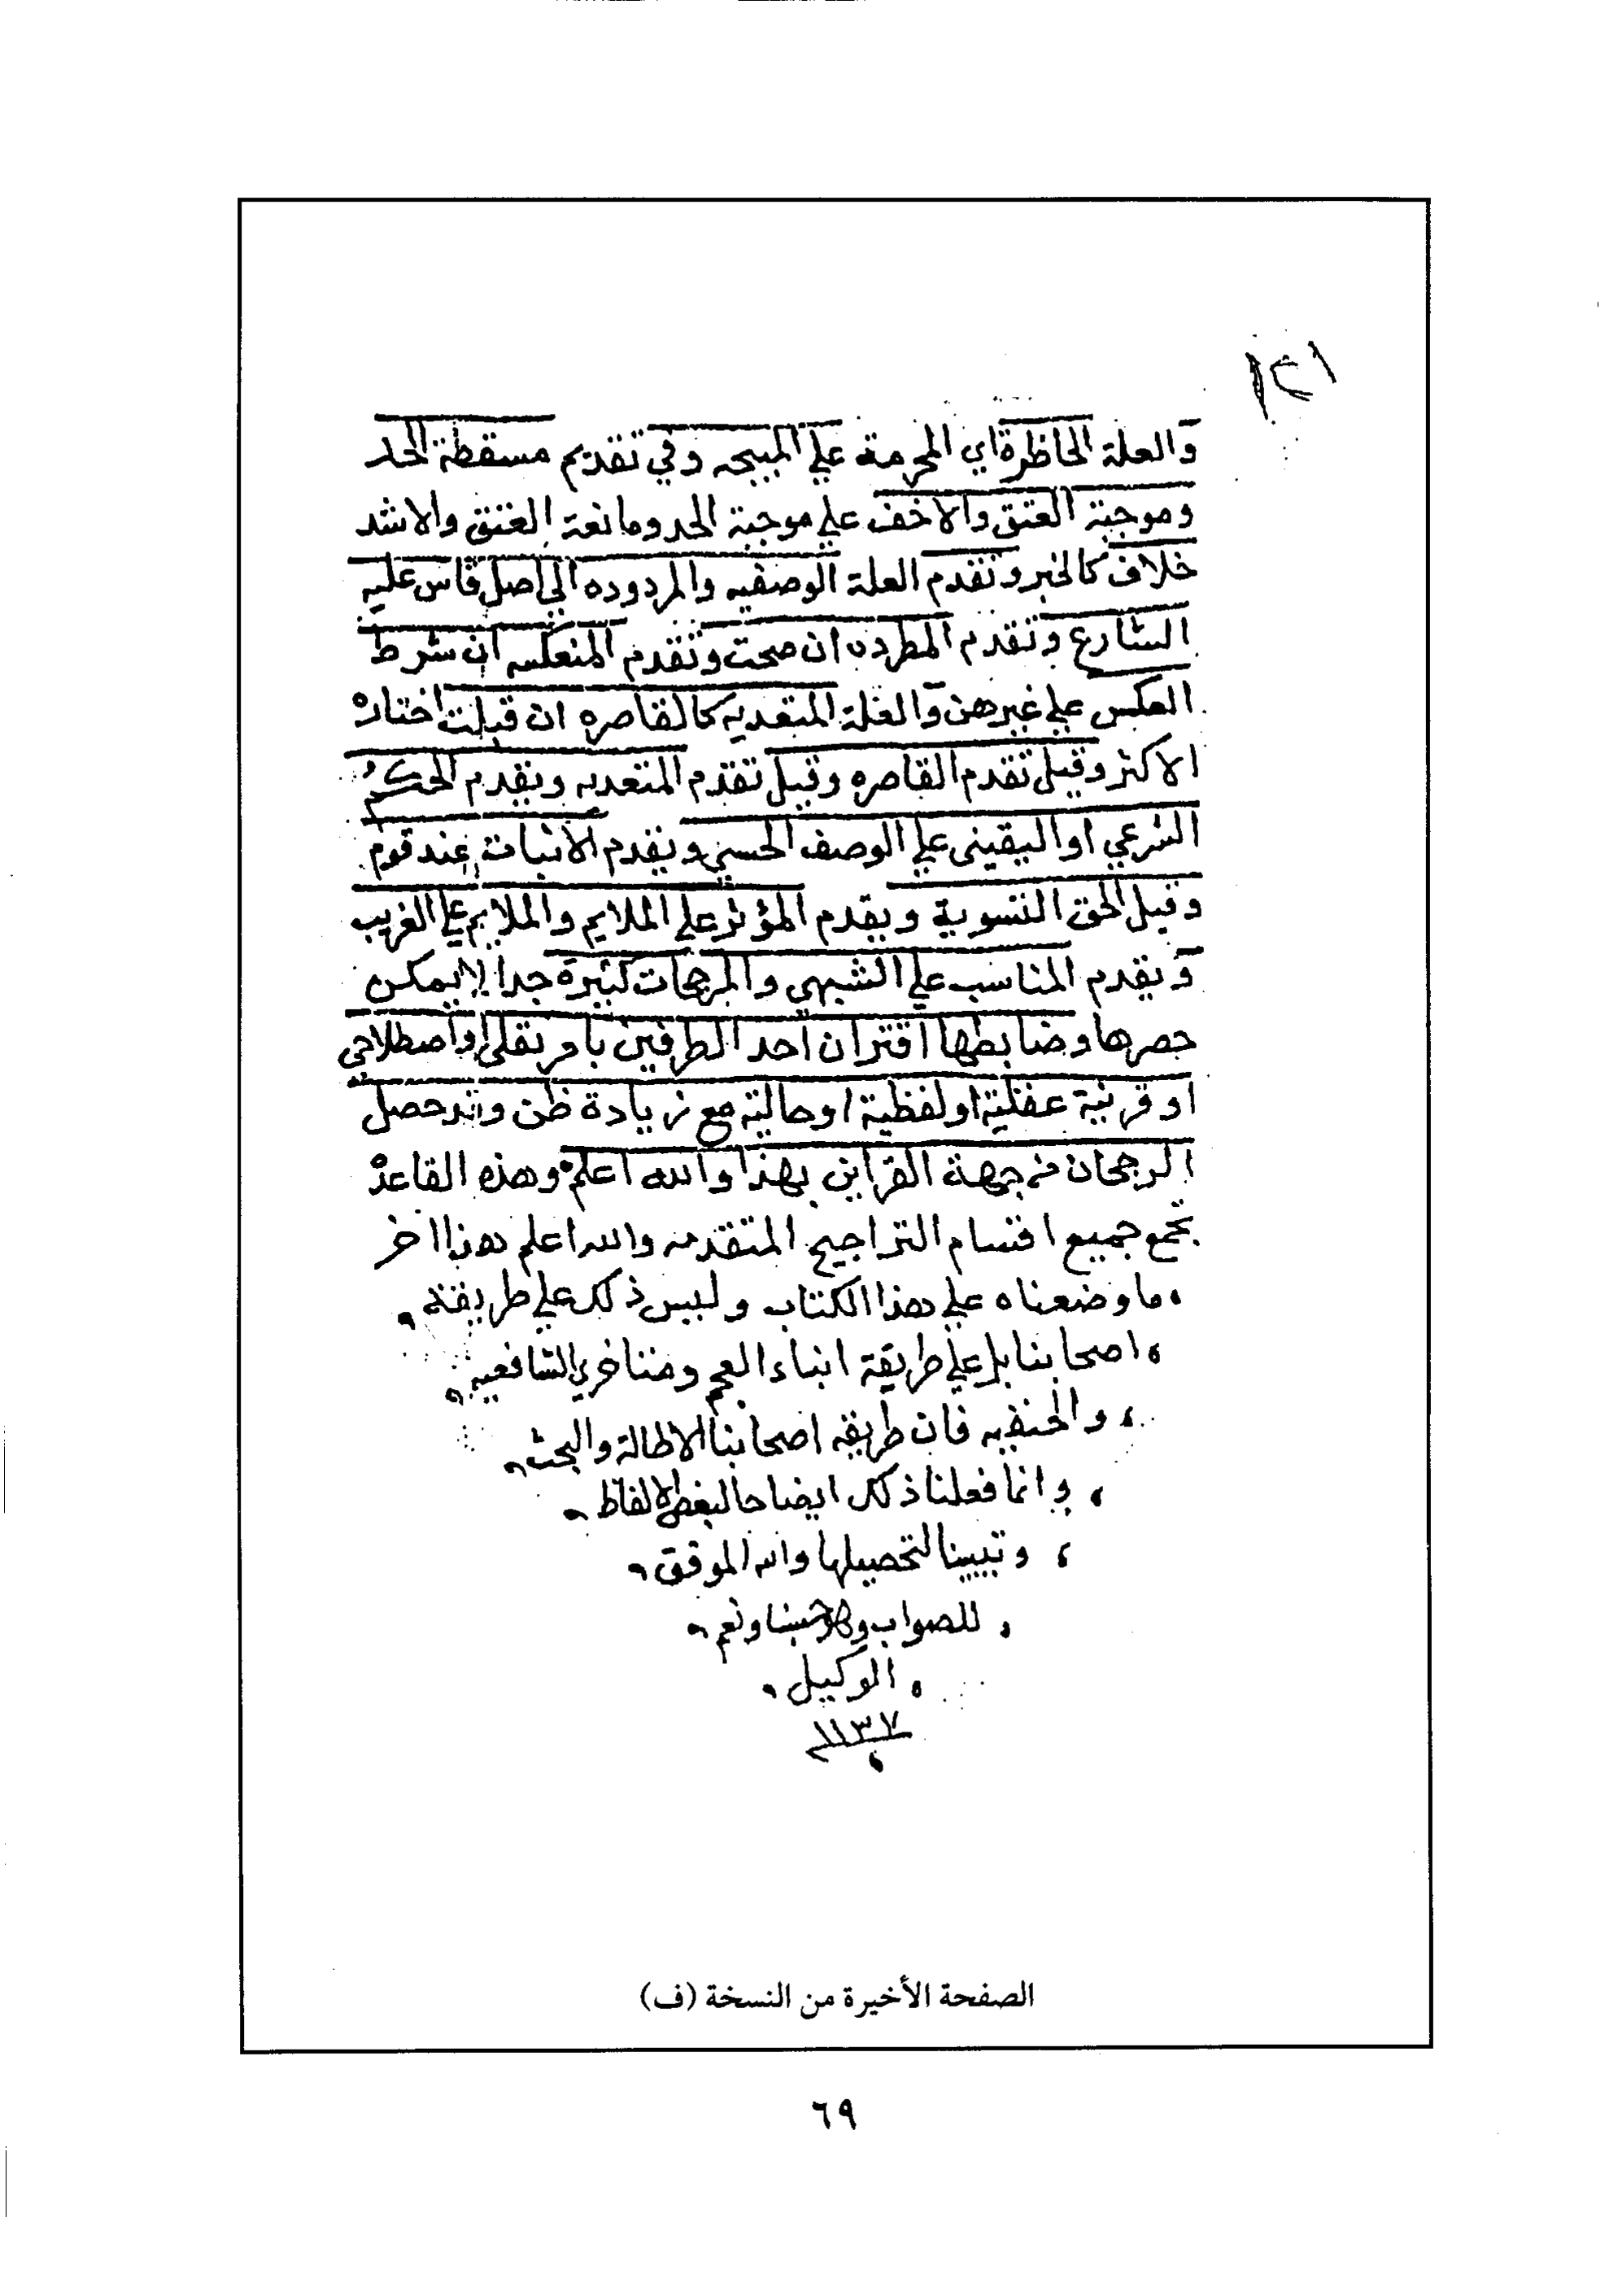 ١٢١
والعلة الحاظرة اي المحرمة علي المبيحه وفي تقديم مسقطة الحد
وموجبة العتق والاخف علي موجبة الحد ومانعة العتق والاشد
خلاف كالخبر وتقدم العلة الوصفيه والمردوده الي اصل قاس عليه
الشارع وتقدم المطرده ان صحت وتقدم المنعكسه ان شرط
العكس علي غيرهن والعلة المتعديه كالقاصره ان قبلت اختاره
الاكثر وقيل تقدم القاصره وقيل تقدم المتعديه ويقدم الحكم
الشرعي او اليقيني علي الوصف الحسي ويقدم الاثبات عند قوم
وقيل الحق التسوية ويقدم المؤثر علي الملايم والملايم علي الغريب
ويقدم المناسب علي الشبهي والمرجحات كثيرة جدا لا يمكن
حصرها وضابطها اقتران احد الطرفين بامر نقلي او اصطلاحي
او قرينة عقلية او لفظية او حالية مع زيادة ظن وقد حصل
الرجحان من جهة القراين بهذا والله اعلم وهذه القاعدة
تجمع جميع اقسام التراجيح المتقدمه والله اعلم هذا اخر
ما وضعناه علي هذا الكتاب وليس ذلك علي طريقة
اصحابنا بل علي طريقة ابناء العجم ومتاخري الشافعيه
والحنفيه فان طريقه اصحابنا الاطالة والبحث
وانما فعلنا ذلك ايضاحا لبعض الالفاظ
وتبيينا لتحصيلها والله الموفق
للصواب وهو حسبنا ونعم
الوكيل
١١٣٧
الصفحة الأخيرة من النسخة (ف)
٦٩